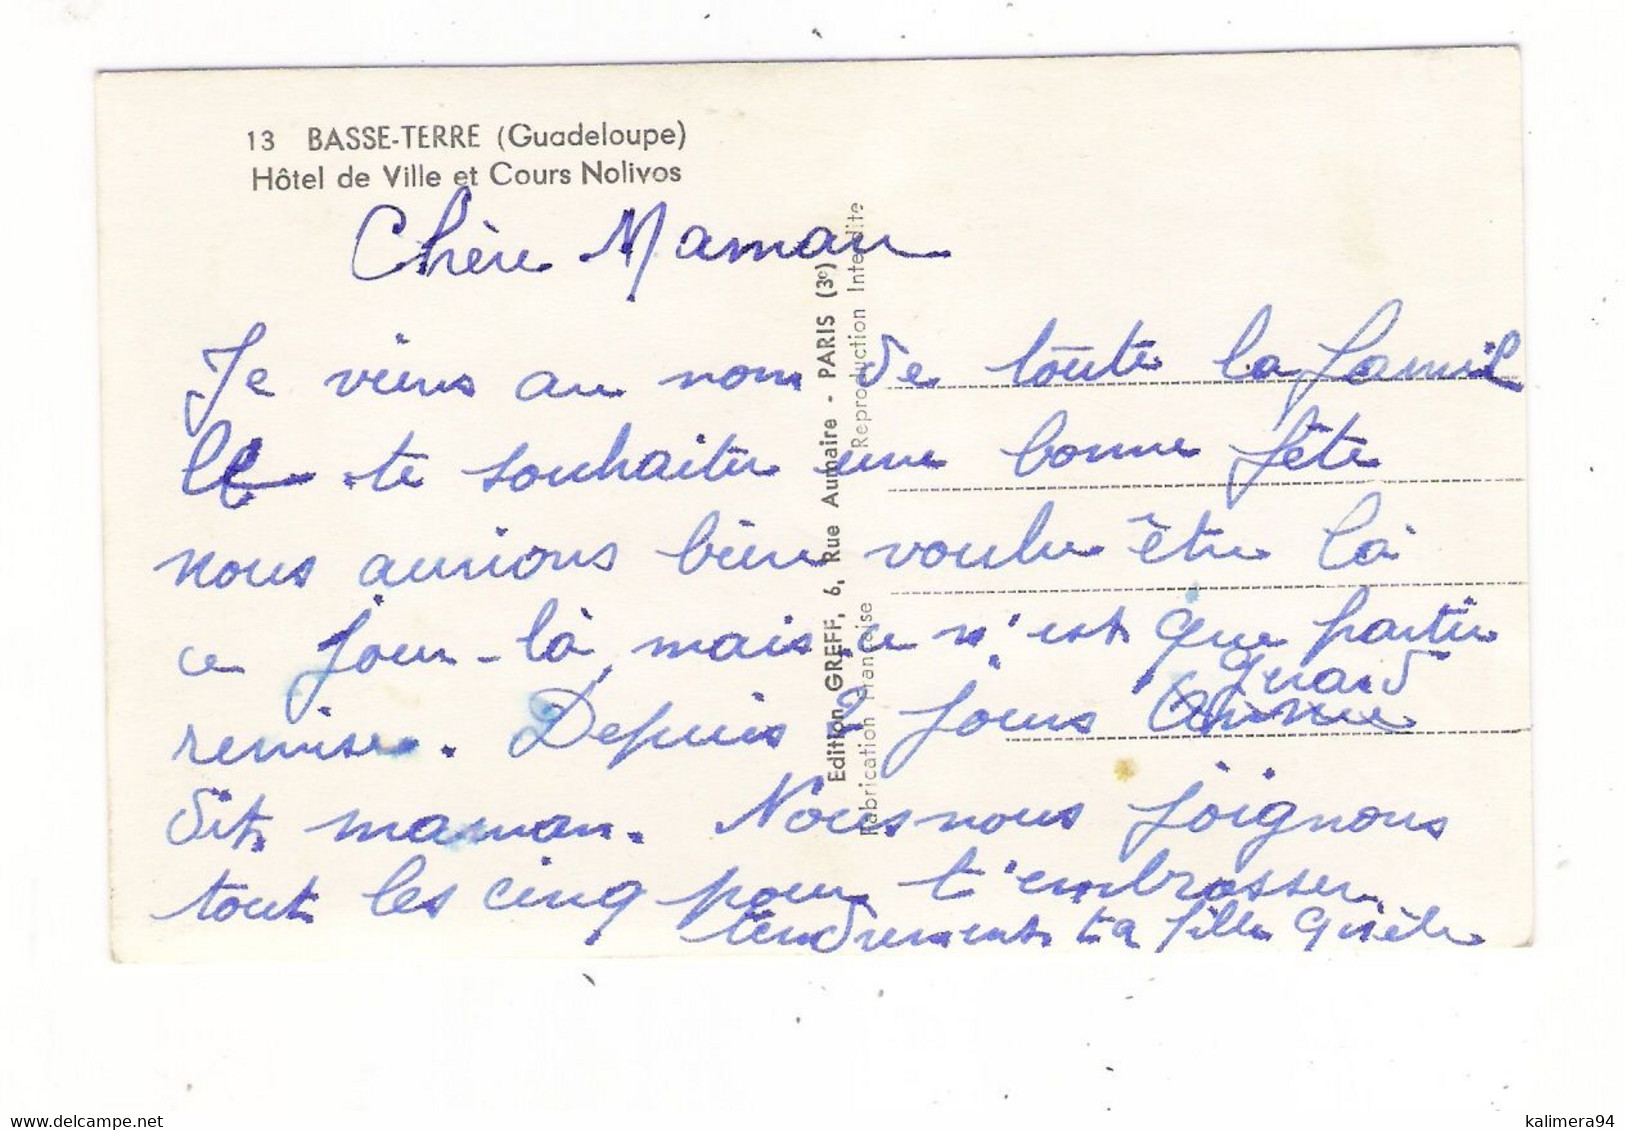 13 BASSE-TERRE (Guadeloupe)
Hôtel de Ville et Cours Nolivos
Chère Maman
Je viens au nom de toute la famil
lle te souhaiter une bonne fête
nous aurions bien voulu être là
ce jour-là, mais ce n'est que partie
remise. Depuis 2 jours
dit maman. Nous nous joignons
tout les cinq pour t'embrasser
tendrement ta fille Gisèle
Edition GREFF, 6, Rue Aumaire - PARIS (3e)
Fabrication Française Reproduction Interdite
www.delcampe.net
kalimera94